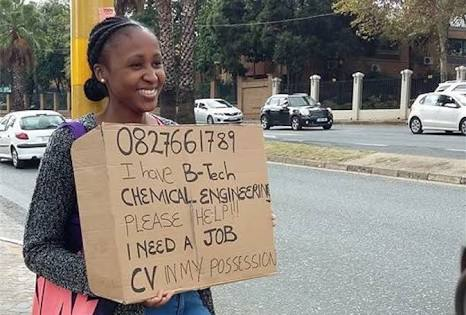 0827661789
I have B-Tech
CHEMICAL ENGINEERING
PLEASE HELP!!!
I NEED A JOB
CV IN MY POSSESSION